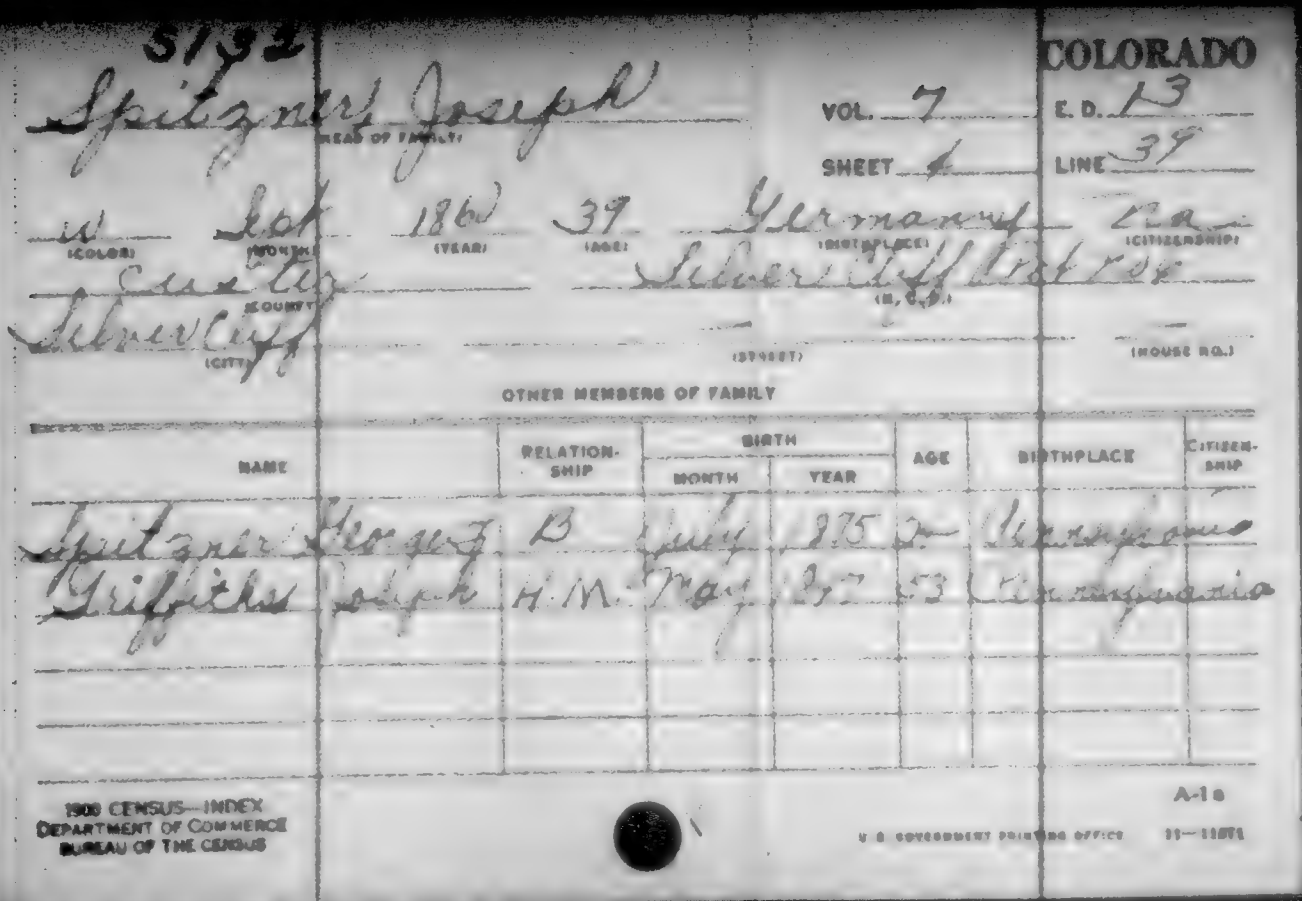 5132
COLORADO
Spitzner, Joseph
(HEAD OF FAMILY)
VOL. 7 E. D. 13
SHEET LINE 39
W 186 39 Germany Na
(COLOR) (MONTH) (YEAR) (AGE) (BIRTHPLACE) (CITIZENSHIP)
Custer Silver Cliff
(COUNTY) (M. C. D.)
Silver Cliff — —
(CITY) (STREET) (HOUSE NO.)
OTHER MEMBERS OF FAMILY
NAME RELATION-SHIP BIRTH MONTH YEAR AGE BIRTHPLACE CITIZEN-SHIP
Spitzner George B July 1875 Pennsylvania
Griffiths Joseph H.M. May 53 Pennsylvania
1900 CENSUS—INDEX
DEPARTMENT OF COMMERCE
BUREAU OF THE CENSUS
A-1a
U. S. GOVERNMENT PRINTING OFFICE